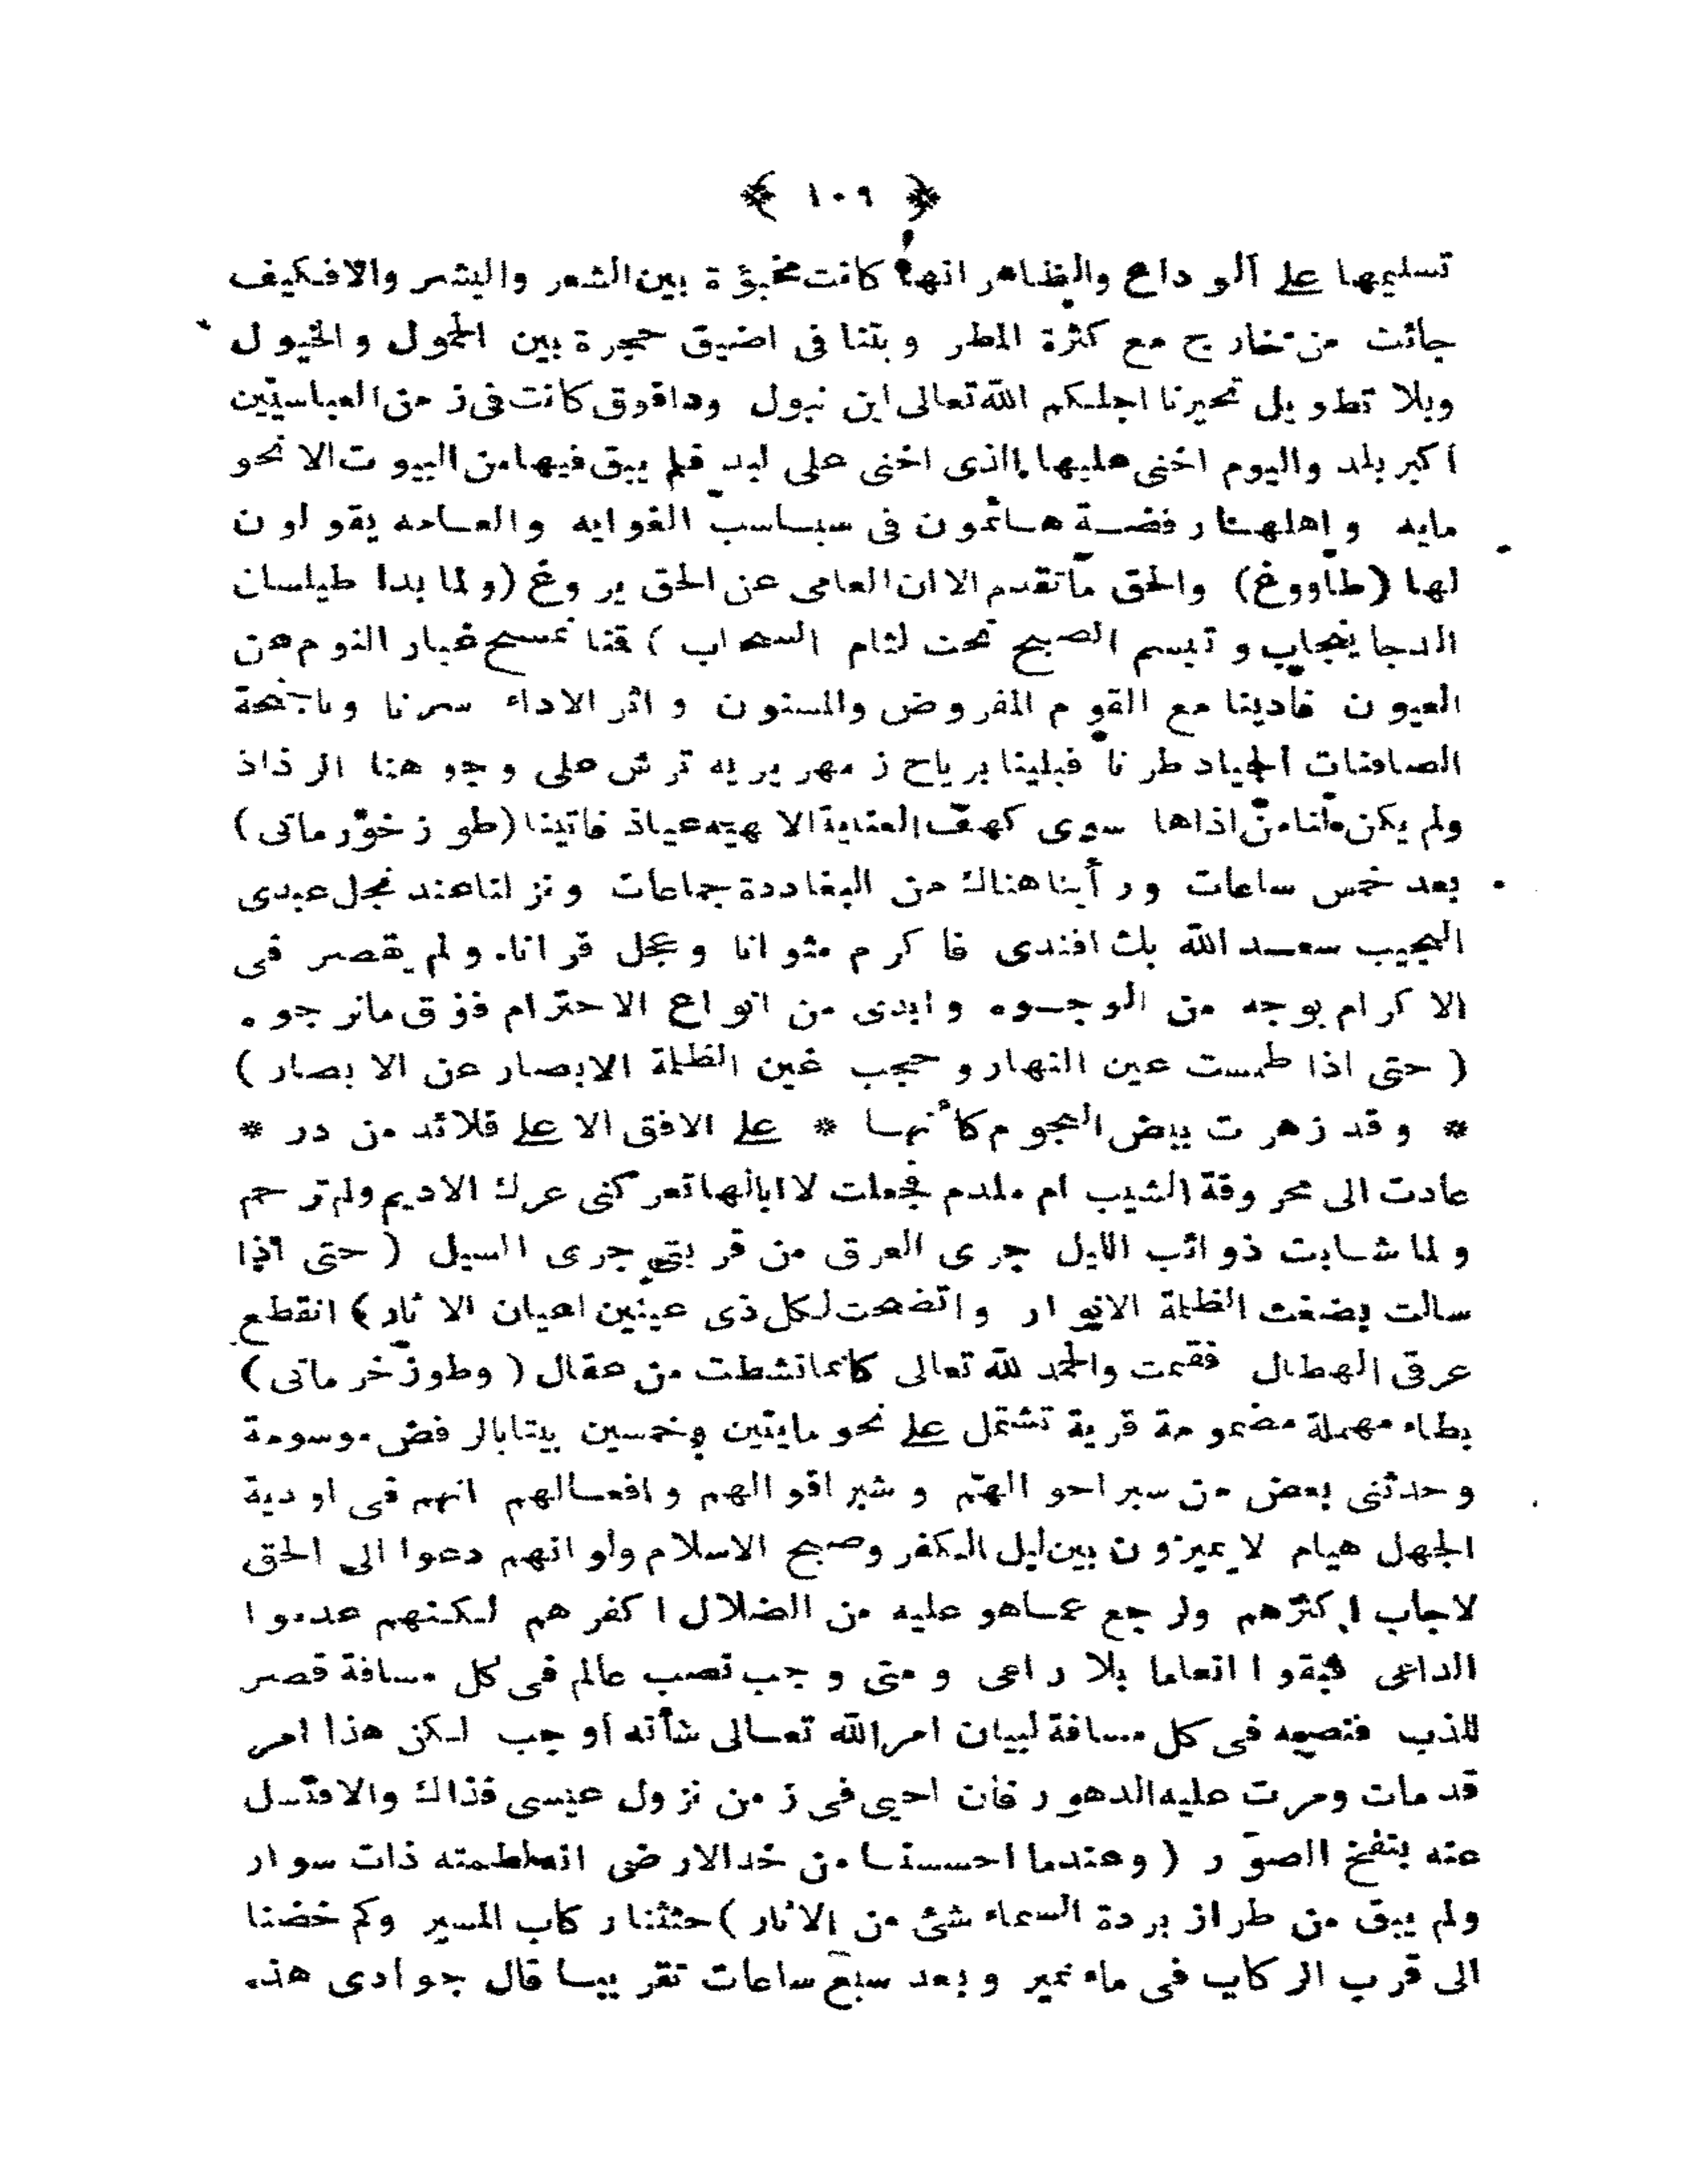 ﴿ ١٠٩ ﴾
تسليمها على الوداع والظاهر انها كانت مخبؤة بين الشعر والبشر والا فكيف
جائت من خارج مع كثرة المطر وبتنا فى اضيق حجرة بين الحمول والخيول
وبلا تطويل تحيرنا اجلكم الله تعالى اين نبول وداقوق كانت فى زمن العباسيين
اكبر بلد واليوم اخنى عليها الذى اخنى على لبد فلم يبق فيها من البيوت الا نحو
مايه واهلها رفضة هائمون فى سباسب الغوايه والعامه يقولون
لها (طاووغ) والحق ماتقدم الا ان العامى عن الحق يروغ (ولما بدا طيلسان
الدجا ينجاب وتبسم الصبح تحت لثام السحاب) قمنا نمسح غبار النوم عن
العيون فادينا مع القوم المفروض والمسنون واثر الاداء سرنا وباجنحة
الصافنات الجياد طرنا فبلينا برياح زمهريريه ترش على وجوهنا الرذاذ
ولم يكن لنا من اذاها سوى كهف العناية الالهيه عياذ فاتينا (طوز خورماتى)
بعد خمس ساعات ورأينا هناك من البغاددة جماعات ونزلنا عند نجل عبدى
النجيب سعد الله بك افندى فاكرم مثوانا وعجل قرانا. ولم يقصر فى
الاكرام بوجه من الوجوه وابدى من انواع الاحترام فوق مانرجوه
( حتى اذا طمست عين النهار وحجب غين الظلمة الابصار عن الابصار )
* وقد زهرت بيض النجوم كأنها * على الافق الاعلى قلائد من در *
عادت الى محروقة الشيب ام ملدم فجعلت لا ابالها تعركنى عرك الاديم ولم ترحم
ولما شابت ذوائب الليل جرى العرق من قربتى جرى السيل ( حتى اذا
سالت بضغث الظلمة الانوار واتضحت لكل ذى عينين اعيان الاثار ) انقطع
عرقى الهطال فقمت والحمد لله تعالى كانما نشطت من عقال ( وطوز خرماتى )
بطاء مهملة مضمومة قرية تشتمل على نحو مايتين وخمسين بيتا بالرفض موسومة
وحدثنى بعض من سبر احوالهم وشبر اقوالهم وافعالهم انهم فى اودية
الجهل هيام لا يميزون بين ليل الكفر وصبح الاسلام ولو انهم دعوا الى الحق
لاجاب اكثرهم ولرجع عما هو عليه من الضلال اكفرهم لكنهم عدموا
الداعى فبقوا انعاما بلا راعى ومتى وجب نصب عالم فى كل مسافة قصر
للذب فنصبه فى كل مسافة لبيان امر الله تعالى شأنه اوجب لكن هذا امر
قد مات ومرت عليه الدهور فان احيى فى زمن نزول عيسى فذاك والا فتسل
عنه بنفخ الصور ( وعندما احسسنا من خد الارض انها لطمته ذات سوار
ولم يبق من طراز بردة السماء شئ من الاثار ) حثثنا ركاب المسير وكم خضنا
الى قرب الركاب فى ماء نمير وبعد سبع ساعات تقريبا قال جوادى هذه